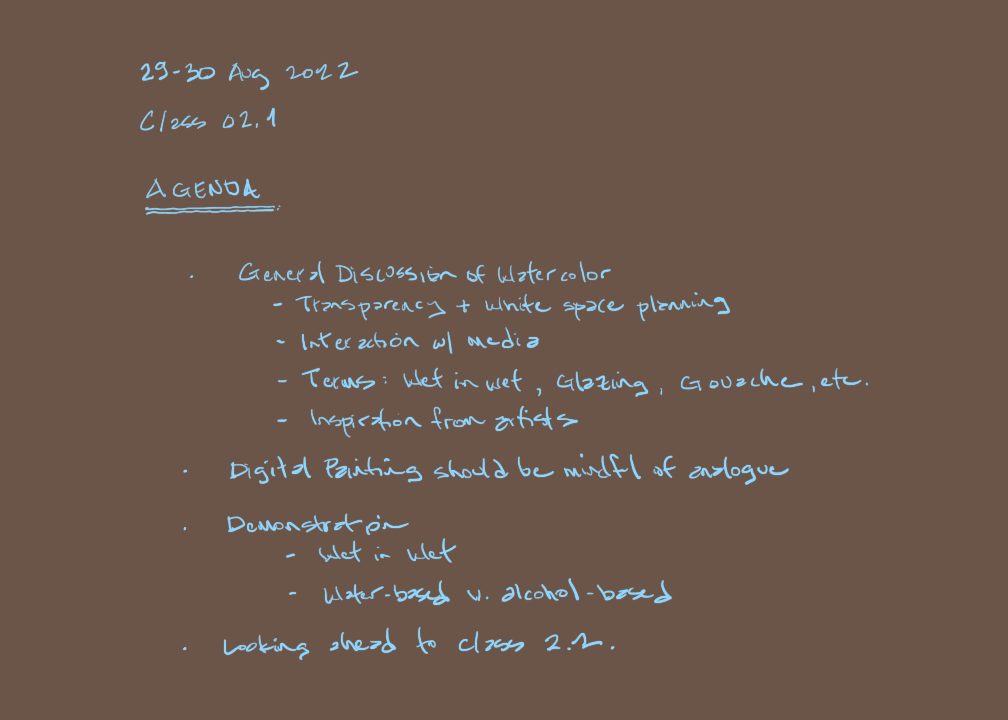 29-30 Aug 2022
Class 02.1
AGENDA
· General Discussion of Watercolor
- Transparency + white space planning
- Interaction w/ media
- Terms: Wet in wet, Glazing, Gouache, etc.
- Inspiration from artists
· Digital Painting should be mindful of analogue
· Demonstration
- Wet in Wet
- Water-based v. alcohol-based
· Looking ahead to class 2.2.